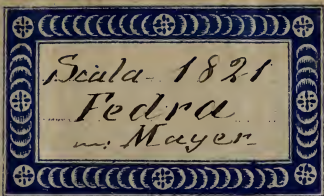 Scala 1821
Fedra
m: Mayer